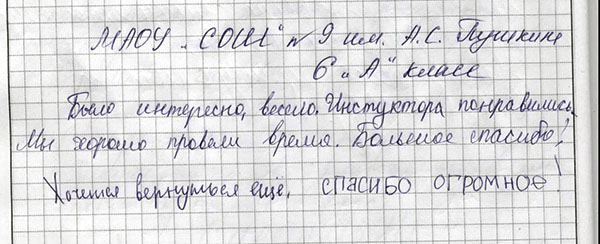 МАОУ „СОШ" № 9 им. А.С. Пушкина
6 „А" класс
Было интересно, весело. Инструктора понравились.
Мы хорошо провели время. Большое спасибо!
Хочется вернуться ещё, спасибо огромное!